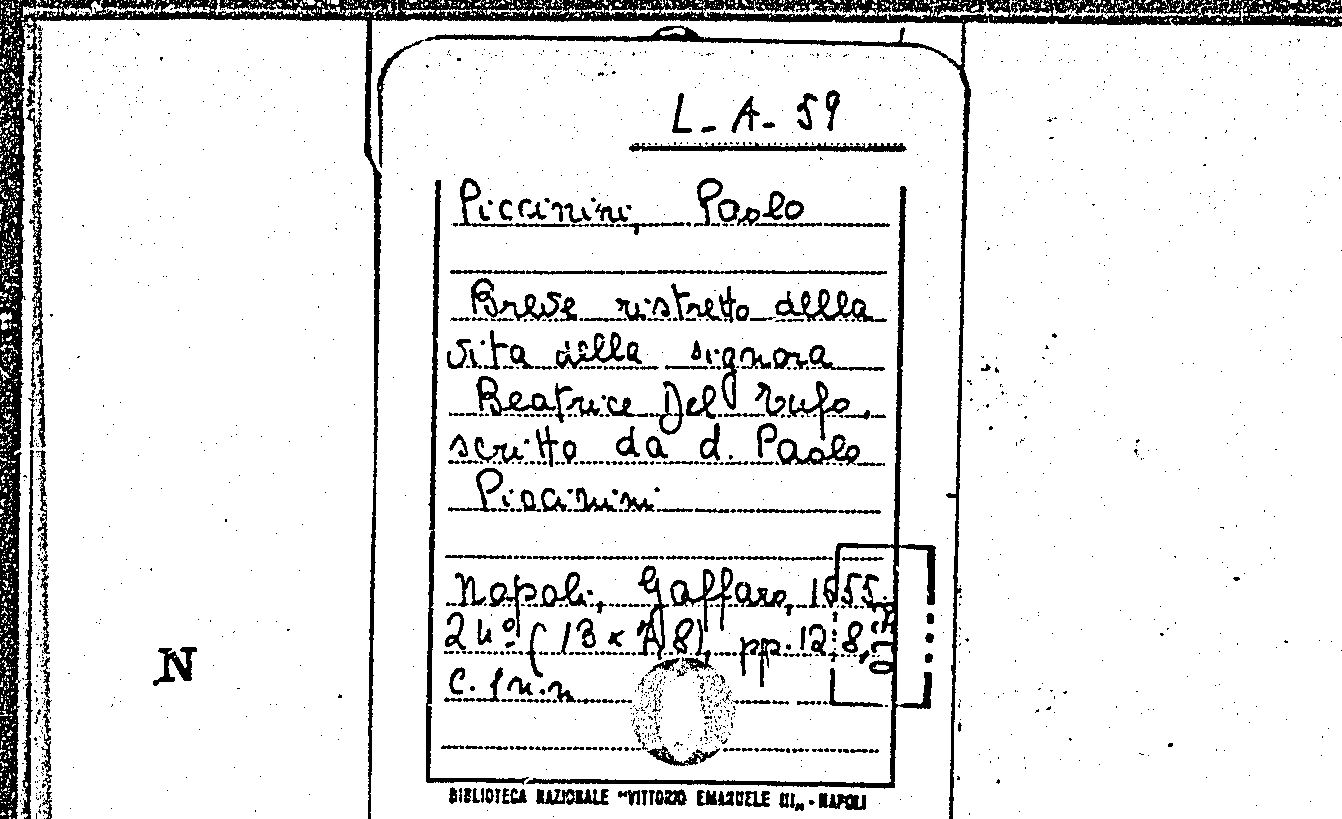 L-A-59
Piccinini, Paolo
Breve ristretto della
vita della signora
Beatrice Del Rufo.
scritto da d. Paolo
Piccinini
Napoli, Gaffaro, 1655.
24º (13 x 7,8), pp. 128,
c. 1 n.n.
N
BIBLIOTECA NAZIONALE "VITTORIO EMANUELE III„ - NAPOLI